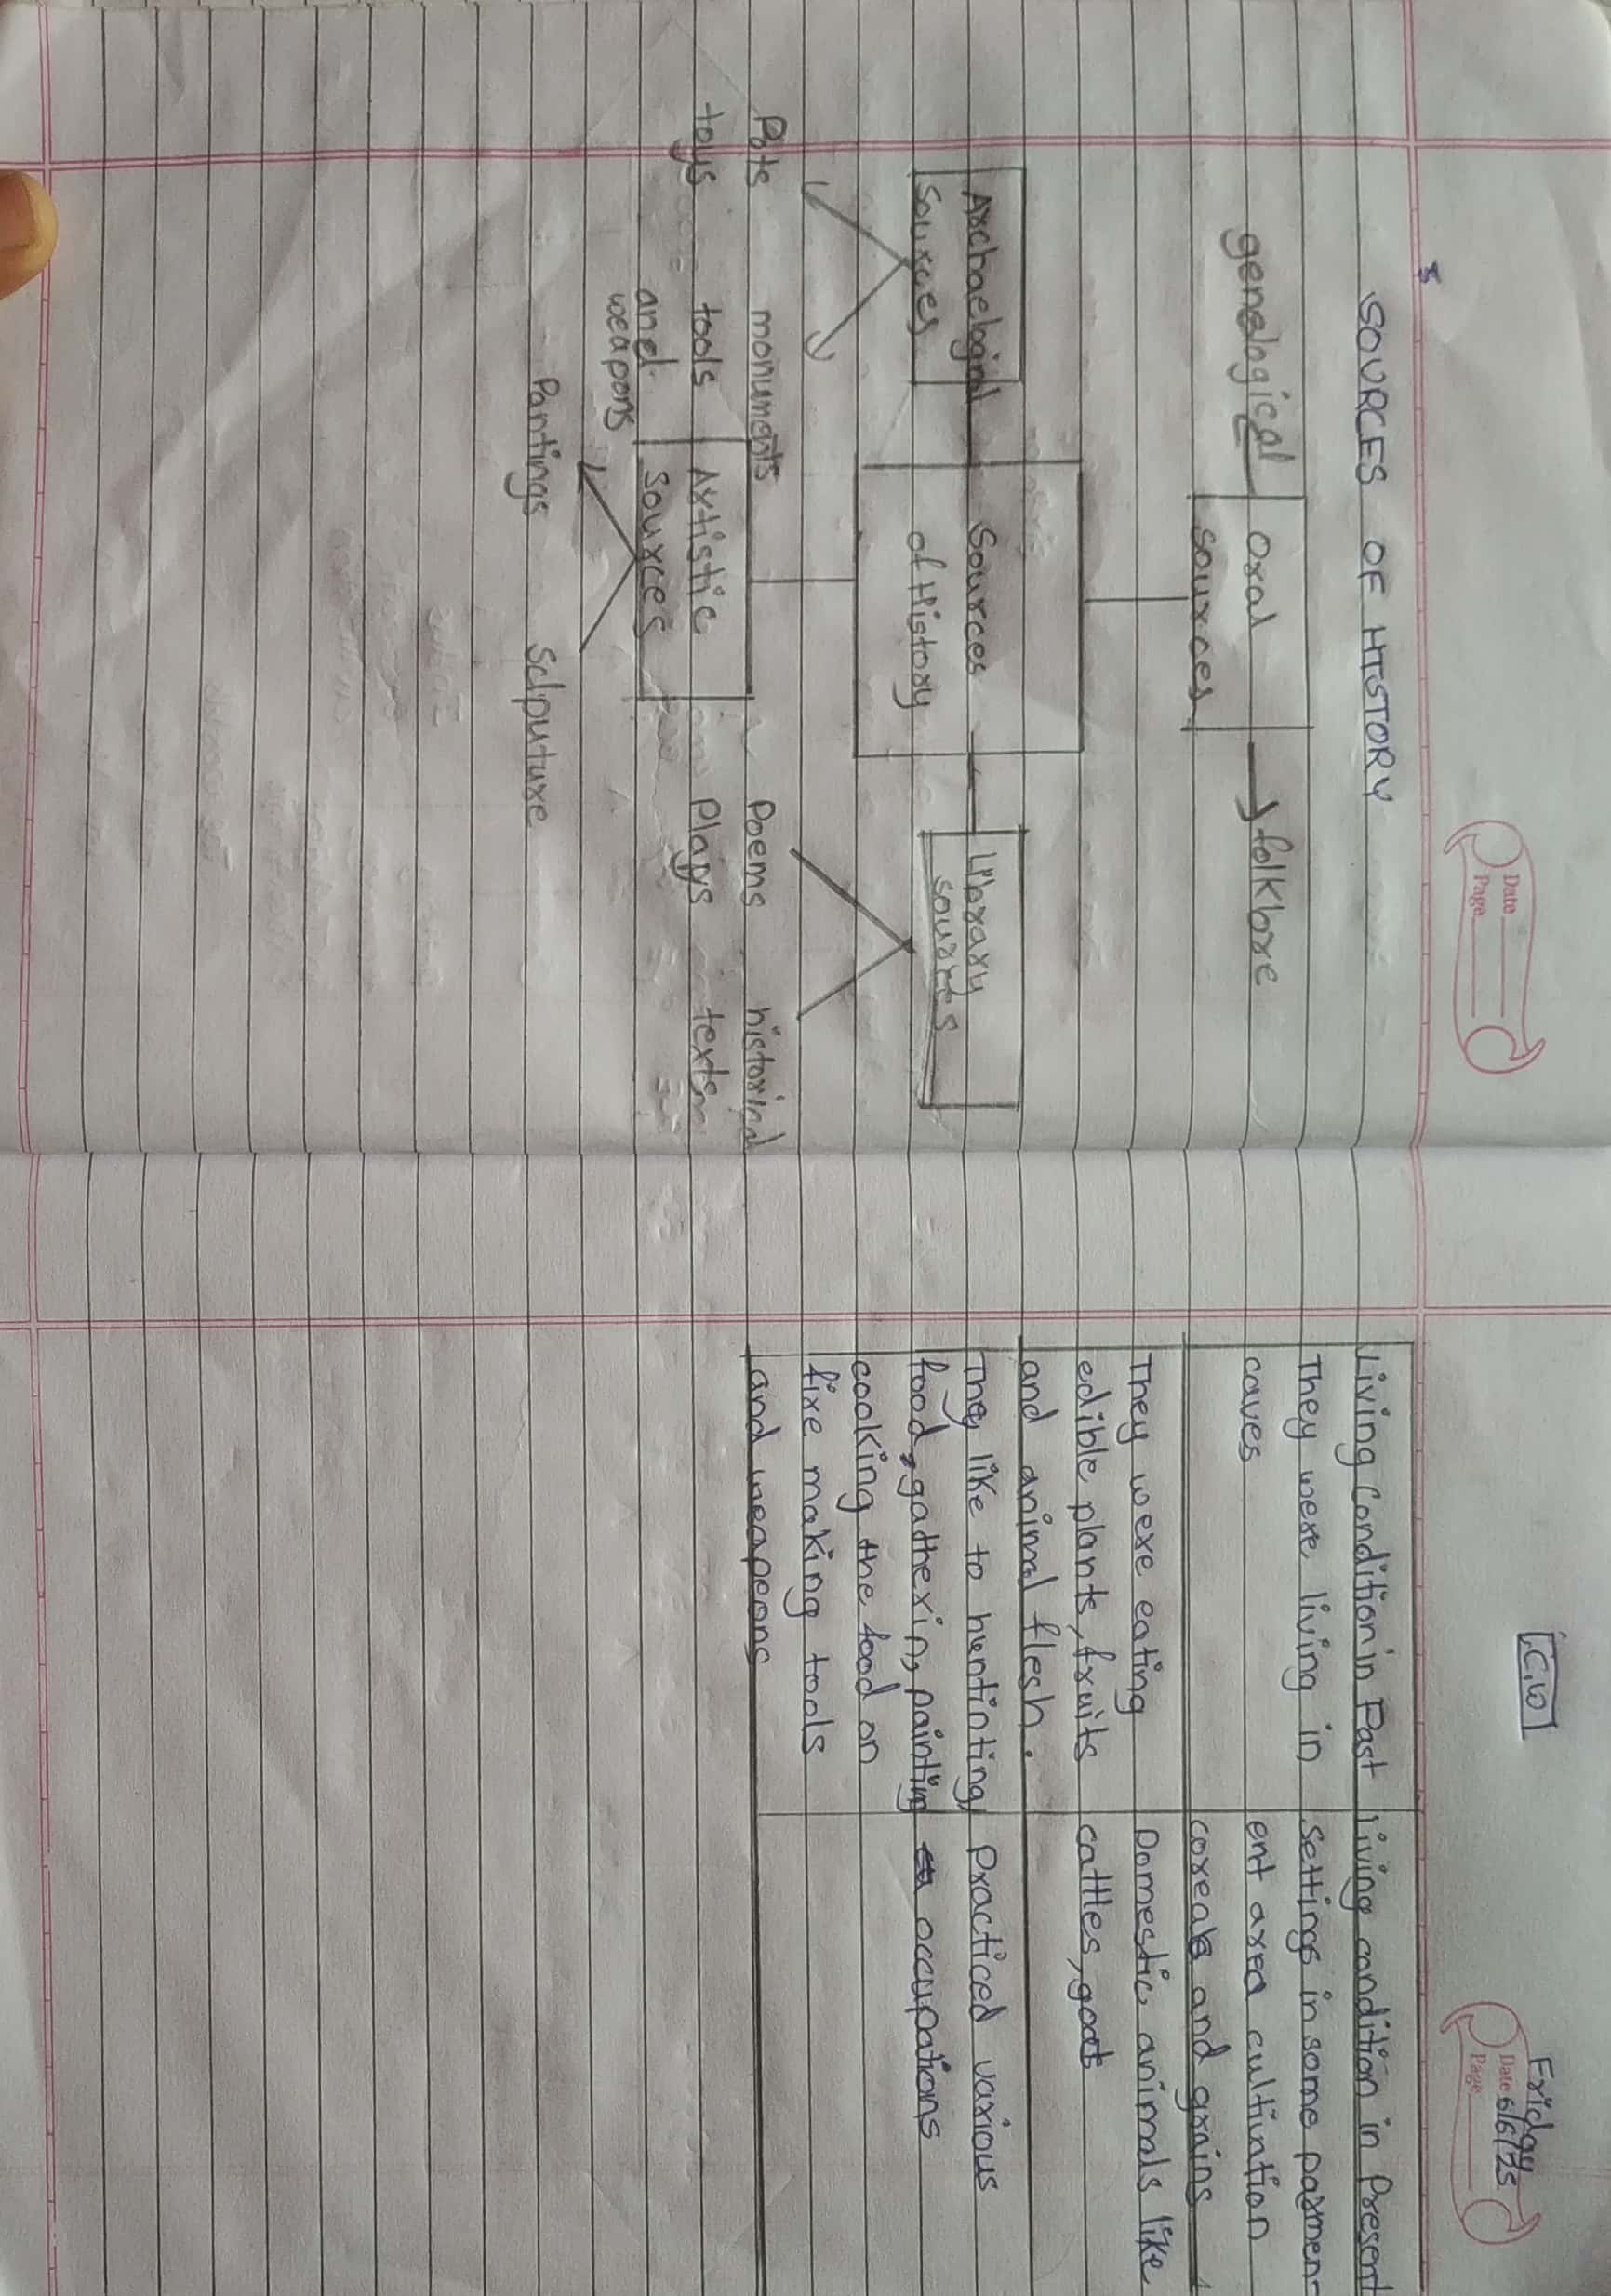 Date
Page
SOURCES OF HISTORY
genelogical
Oral
sources
folklore
Archaelogical
Sources
Sources
of History
Library
sources
Pots
monuments
toys
tools
and
weapons
Poems
historical
Plays
texts
Artistic
Sources
Pantings
Sclputure
C.W
Friday
Date 6/6/25
Page
Living Condition in Past
living condition in Present
They were living in
caves
settings in some parmen-
ent area cultivation
coreals and grains
They were eating
edible plants, fruits
and animal flesh.
Domestic animals like
cattles, goats
They like to huntinting,
food, gatherin, painting
cooking the food on
fire making tools
and weapeons
Practiced various
occupations